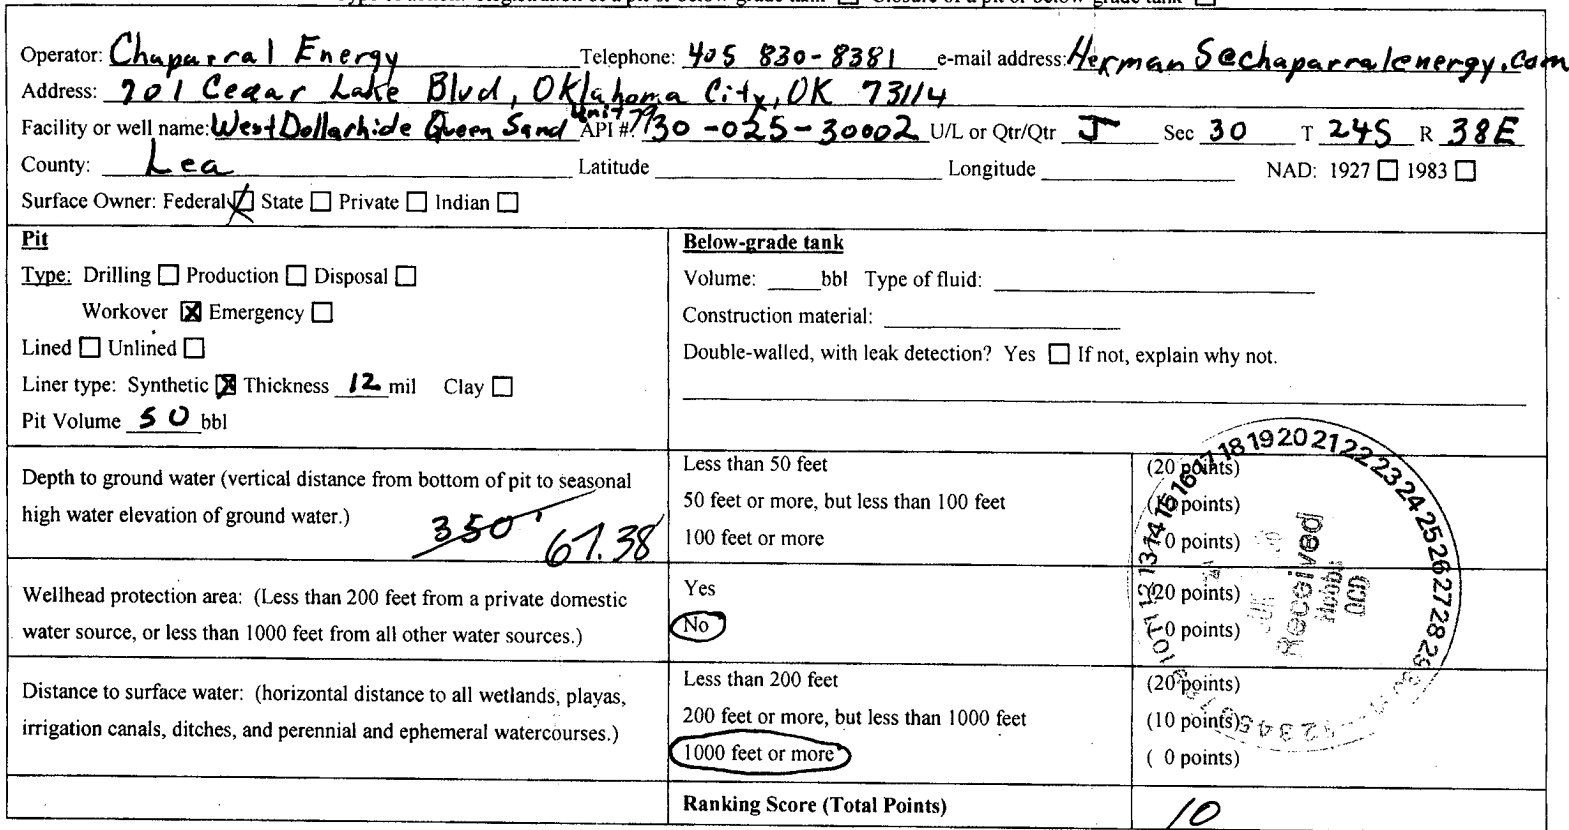 Operator: Chaparral Energy Telephone: 405 830-8381 e-mail address: HermanS@chaparralenergy.com
Address: 701 Cedar Lake Blvd, Oklahoma City, OK 73114
Facility or well name: West Dollarhide Queen Sand Unit 79 API #: 30-025-30002 U/L or Qtr/Qtr J Sec 30 T 24S R 38E
County: Lea Latitude Longitude NAD: 1927 ☐ 1983 ☐
Surface Owner: Federal ☒ State ☐ Private ☐ Indian ☐
Pit
Type: Drilling ☐ Production ☐ Disposal ☐
Workover ☒ Emergency ☐
Lined ☐ Unlined ☐
Liner type: Synthetic ☒ Thickness 12 mil Clay ☐
Pit Volume 50 bbl
Below-grade tank
Volume: bbl Type of fluid:
Construction material:
Double-walled, with leak detection? Yes ☐ If not, explain why not.
Depth to ground water (vertical distance from bottom of pit to seasonal
high water elevation of ground water.)
350' 67.38
Less than 50 feet (20 points)
50 feet or more, but less than 100 feet (10 points)
100 feet or more ( 0 points)
Wellhead protection area: (Less than 200 feet from a private domestic
water source, or less than 1000 feet from all other water sources.)
Yes (20 points)
No ( 0 points)
Distance to surface water: (horizontal distance to all wetlands, playas,
irrigation canals, ditches, and perennial and ephemeral watercourses.)
Less than 200 feet (20 points)
200 feet or more, but less than 1000 feet (10 points)
1000 feet or more ( 0 points)
Ranking Score (Total Points) 10
Received
Hobbs
OCD